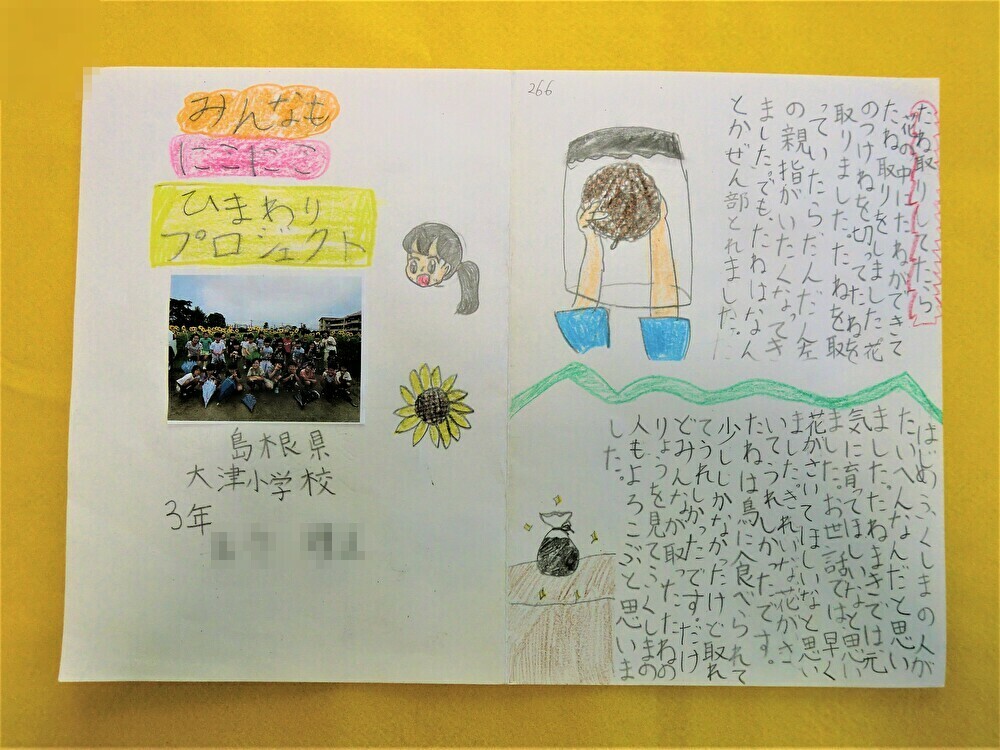 みんなも
にこにこ
ひまわり
プロジェクト
島根県
大津小学校
3年
266
たね取りしてたら
花の中にたねができて
たね取りをしました。花
のつけねを切ってたねを
取りました。たねを取
っていたらだんだん左
の親指がいたくなってき
ました。でも、たねはなん
とかぜん部とれました。
はじめ、ふくしまの人が
たいへんなんだと思い
ました。たねまきでは元
気に育ってほしいなと思い
ました。お世話では早く
花がさいてほしいなと思い
ました。きれいな花がさ
いてうれしかったです。
たねは鳥に食べられて
少ししかなかったけど取れ
てうれしかったです。だけ
どみんなが取ったたねの
りょうを見てふくしまの
人もよろこぶと思いま
した。